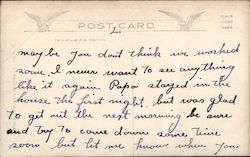 POST CARD
may be you dont think we worked
some, I never want to see anything
like it again Papa stayed in the
house the first night, but was glad
to get out the next morning be sure
and try to come down some time
soon but let me know when you